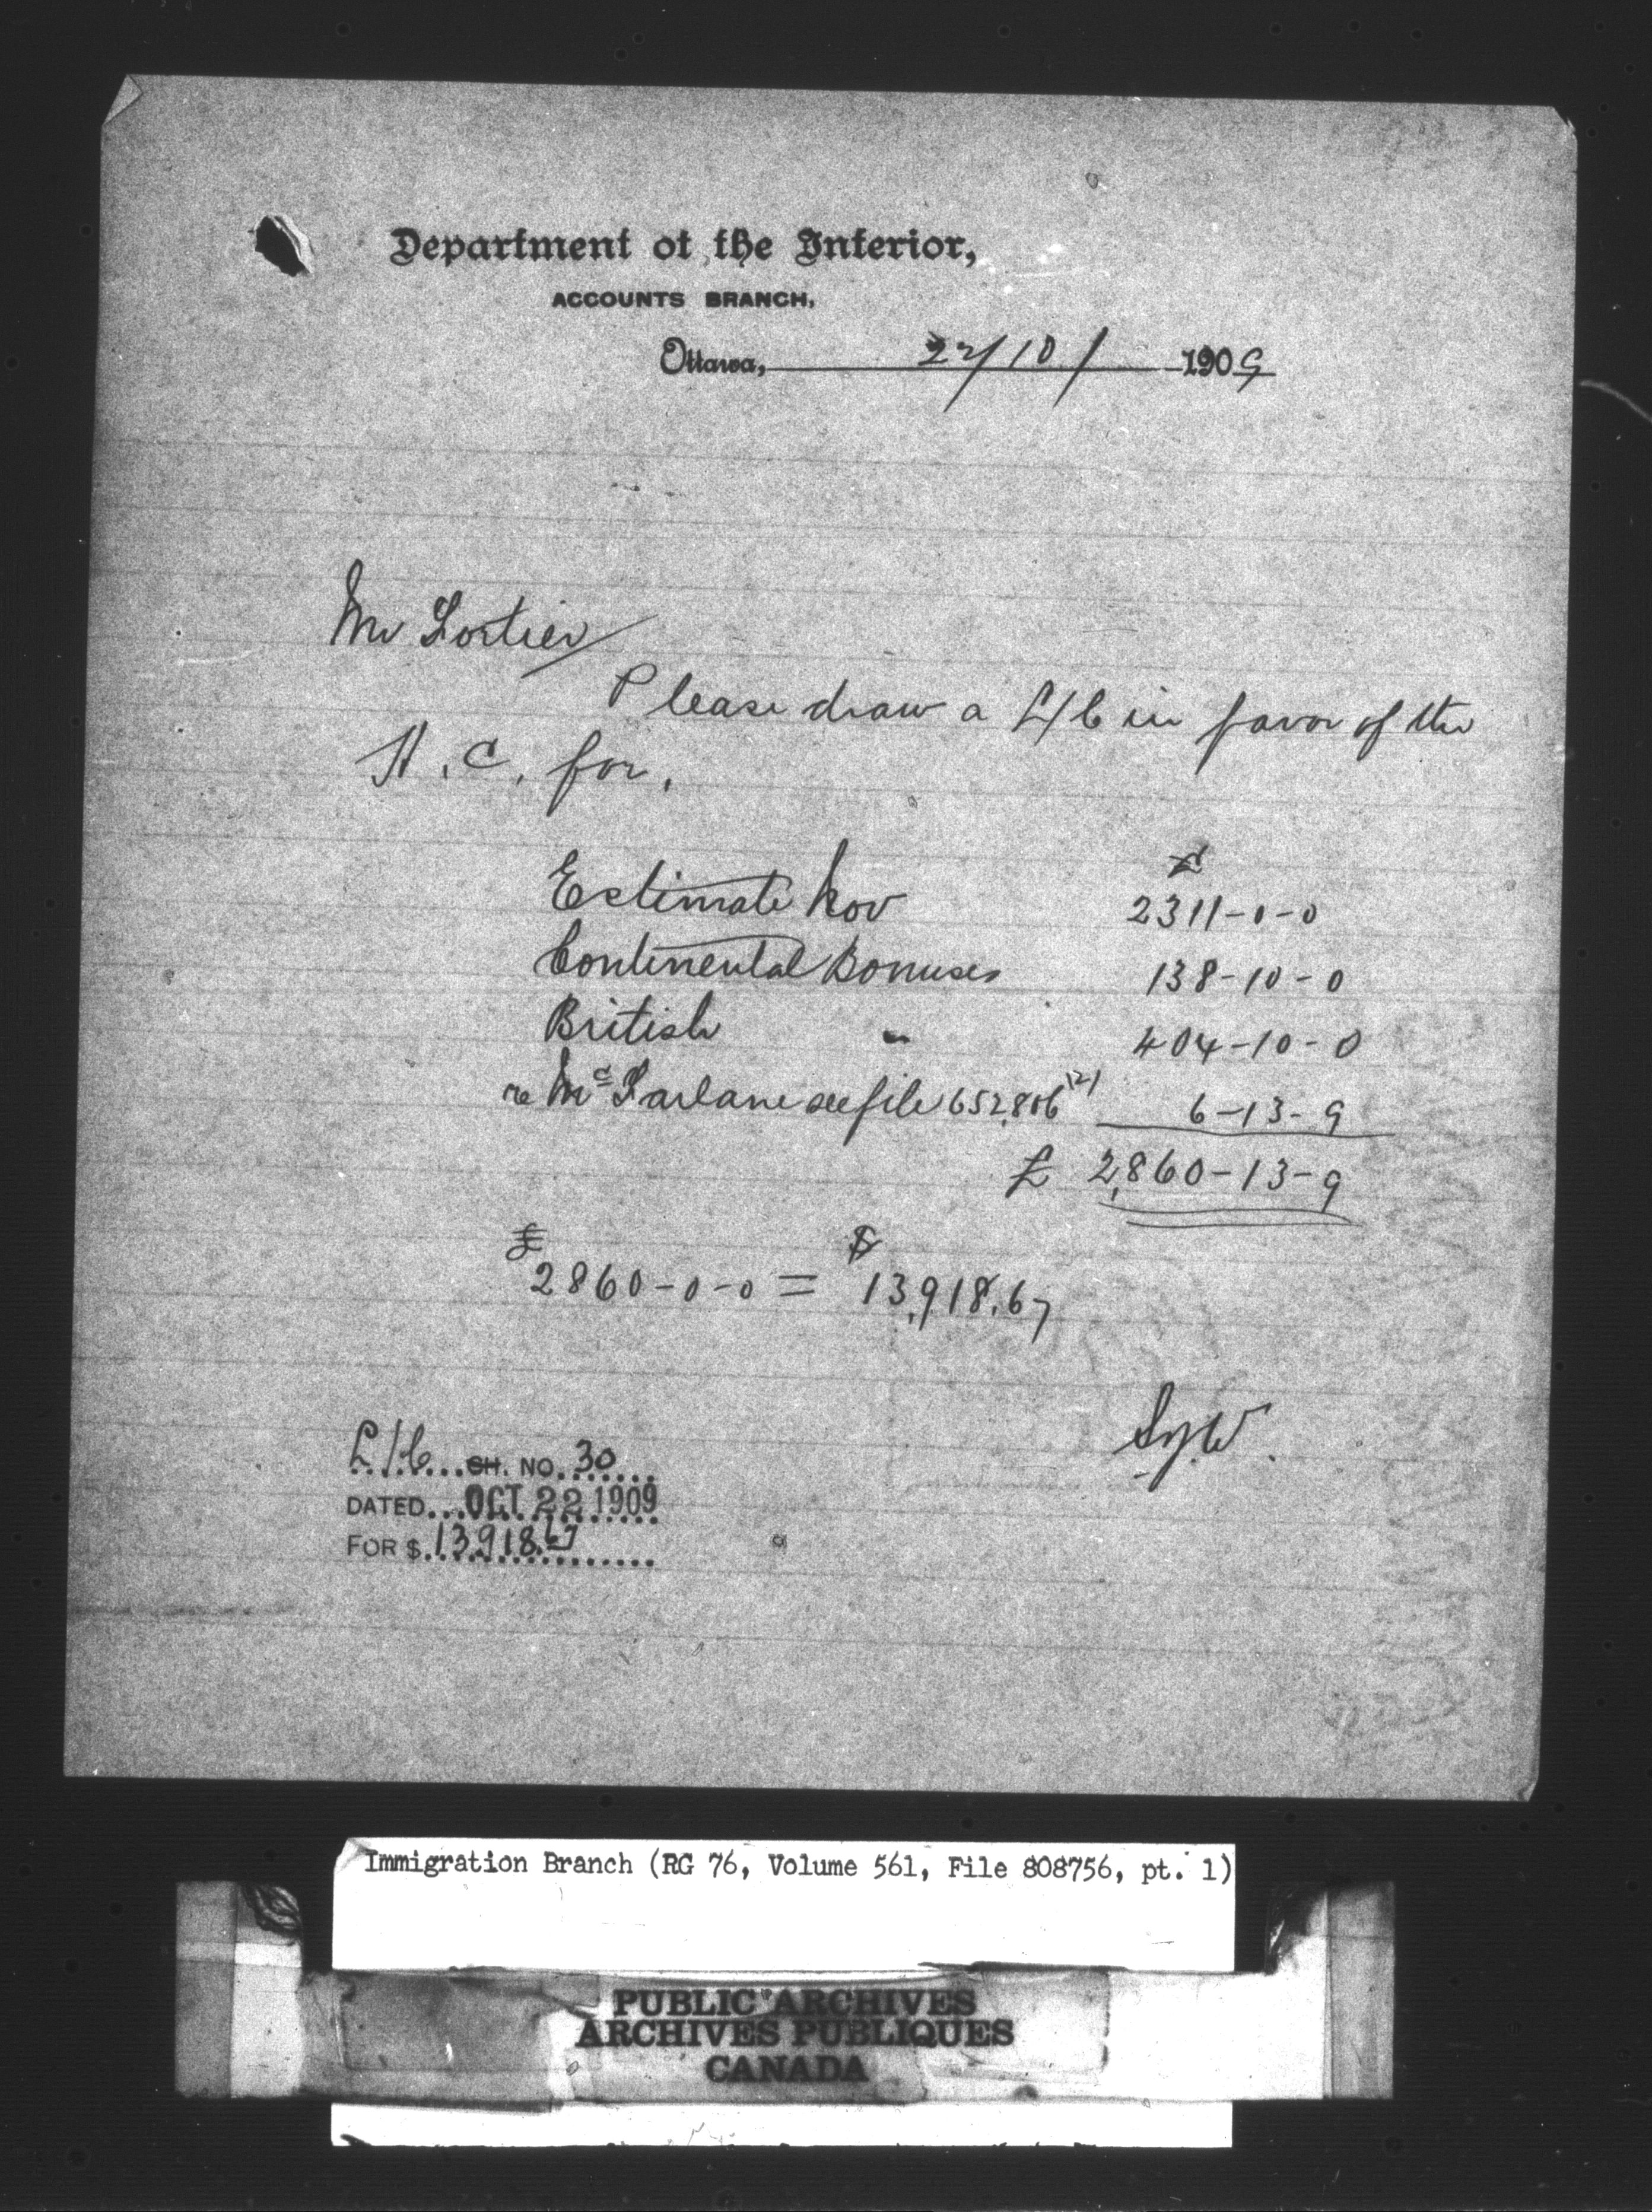 Department of the Interior,
ACCOUNTS BRANCH,
Ottawa, 22/10/ 1909
Mr Fortier
Please draw a L/C in favor of the
H. C. for,
£
Estimate Nov 2311-0-0
Continental Bonuses 138-10-0
British " 404-10-0
re McFarlane see file 652,806 (2) 6-13-9
£ 2,860-13-9
£ $
2860-0-0 = 13,918.67
L/C CH. NO. 30
DATED OCT 22 1909
FOR $ 13918.67
Immigration Branch (RG 76, Volume 561, File 808756, pt. 1)
PUBLIC ARCHIVES
ARCHIVES PUBLIQUES
CANADA